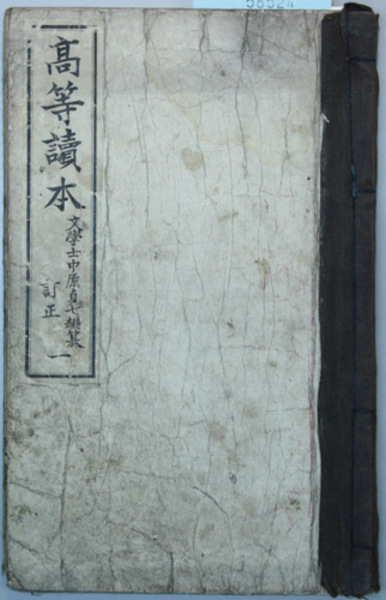 58524
高等讀本
文學士中原貞七編纂
訂正
一